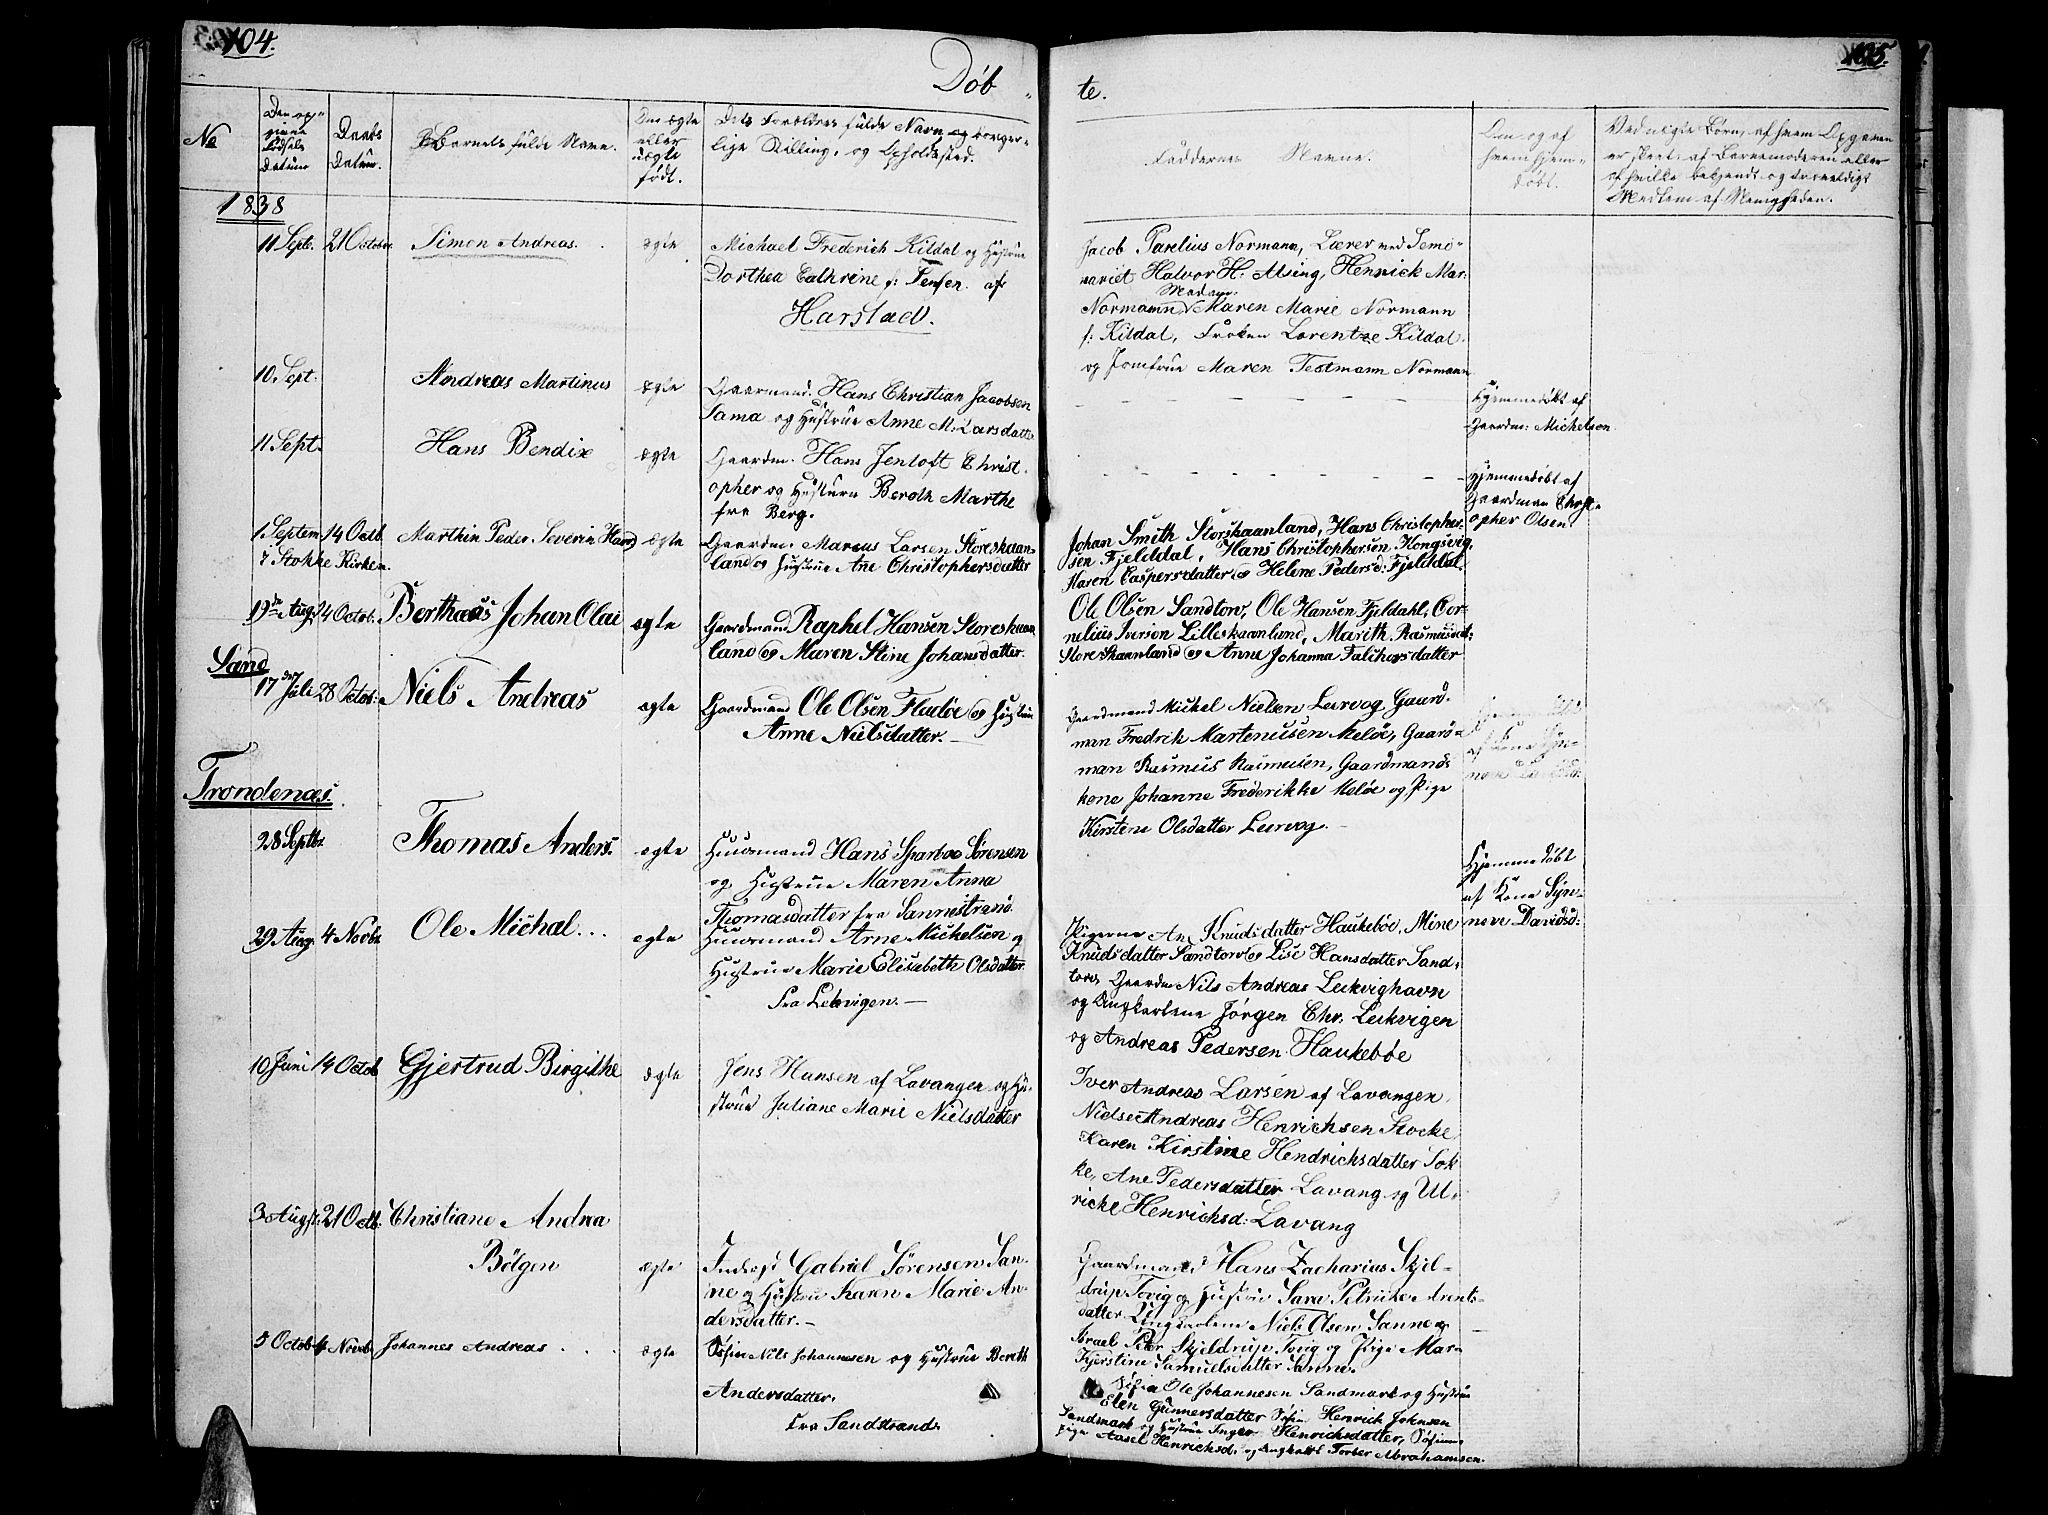 104.
105.
Døb
te.
No
Den op-
givne
Fødsels
Datum
Daabs
Datum.
Barnets fulde Navn.
Om ægte
eller
uægte
født.
Dets Forældres fulde Navn og borger-
lige Stilling, og Opholdssted.
Faddernes Navne.
Om og af
hvem hjem-
døbt.
Ved uægte Børn, af hvem Opgaven
er skeet: af Barnemoderen eller
af hvilke bekjendt og troværdigt
Medlem af Menigheden.
1838
11 Sept. 21 October Simon Andreas. ægte
Michael Frederich Kildal og Hustrue
Dorthea Cathrine f: Jensen. af
Harstad.
Jacob Parelius Normann, Lærer ved Semi-
nariet Halvor H: Alsing, Henrick Mar:
Madam
Normann, Maren Marie Normann
f: Kildal, Frøken Lorentze Kildal
og Jomfrue Maren Testmann Normann
10. Sept. Andreas Martinus ægte
Gaarmand. Hans Christian Jacobsen
Sama og Hustrue Anne M. Larsdatter
Hjemmedøbt af
Gaardm: Michelsen.
11 Sept. Hans Bendix ægte
Gaardm. Hans Jentoft Christ-
opher og Husturn Beroth Marthe
fra Berg.
hjemmedøbt af
Gaardman Christ-
opher Olsen
1. Septem 14 Octb. Marthin Peder Severin Hard ægte
i Stokke Kirken.
Gaardm. Marcus Larsen Storeskaan-
land og Hustrue Ane Christophersdatter
Johan Smith Storskaanland, Hans Christopher-
sen Fjelddal, Hans Christophersen Kongsvig,
Karen Caspersdatter og Helene Peders d: Fjelddal.
19de Aug. 24 Octob. Berthæus Johan Olai ægte
Gaardmand Raphel Hansen Storeskaan
land og Maren Stine Johansdatter.
Ole Olsen Sandtorv, Ole Hansen Fjeldahl, Cor-
nelius Iverson Lilleskaanland, Marith Rasmusdat:
Store Skaanland og Anne Johanna Falchorsdatter
Sand
17 den Juli 28 Octob: Niels Andreas ægte
Gaardmand Ole Olsen Fladøe og Hustrue
Anne Nielsdatter.
Gaardmand Mickel Nielsen Lervog Gaard-
man Fredrik Martenusen Meløe, Gaard-
man Rasmus Rasmusen, Gaardmands
kone Johanne Frederikke Meløe og Pige
Kirstene Olsdatter Lervog.
Trondenæs.
28 Septbr. Thomas Anders. ægte
Huusmand Hans Sparboe Sørensen
og Hustrue Maren Anna
Thomasdatter fra Sannestrand.
Hjemmedøbt
af Kone Syn-
neve Davidsd:
29 Aug. 4 Novbr Ole Michal... ægte
Huusmand Arne Mickelsen og
Hustrue Marie Elisabeth Olsdatter.
Fra Lekvigen.
Pigerne Ane Knudsdatter Haukebøe, Mine
Knudsdatter Sandtorv og Lise Hansdatter Sand-
torv, Gaardm Nils Andreas Leikvighavn
og Ungkarlene Jørgen Chr. Leikvigen
og Andreas Pedersen Haukebøe
10 Juni 14 Octob Gjertrud Birgithe ægte
Jens Hansen af Lavangen og Hu-
strue Juliane Marie Nielsdatter
Iver Andreas Larsen af Lavangen,
Nielse Andreas Henrichsen Stocke
Karen Kirstine Hendrichsdatter Tok
ke, Ane Pedersdatter Lavang og Ul-
ricke Henrichsd: Lavang
3 August 21 Octb. Christiane Andrea
Bølgen ægte
Inderst Gabriel Sørensen San-
ne og Hustrue Karen Marie An-
dersdatter.
Gaardmand Hans Zacharias Skjel-
drup Tovig og Hustrue Sara Petricke Arents-
datter Ungkarlene Niels Olsen Sanne og
Israel Peter Skjeldrup Tovig og Pige Mar-
Kjerstine Samuelsdatter Sanne.
5 Octob 4 Novb. Johannes Andreas. ægte
Søfin Nils Johannesen og Hustrue Bereth
Andersdatter.
Fra Sandstrand.
Søfin Ole Johannesen Sandmark og Hustrue
Elen Gunnersdatter Søfin Henrich Johnsen
Sandmark og Hustrue Inger Henrichsdatter, Søfinne
pige Aasel Henrichsd. og Ungkarl Torber Abrahamsen.